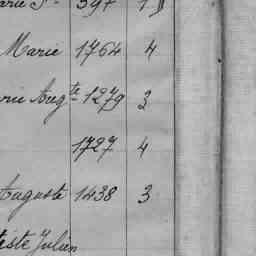 Marie 1764 4
Augte 1279 3
1727 4
Auguste 1438 3
Julien